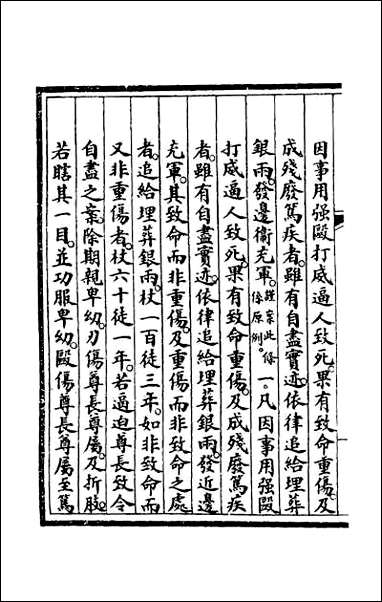 因事用强毆打威逼人致死。果有致命重傷。及
成殘廢篤疾者。雖有自盡實迹。依律追給埋葬
銀兩。發邊衞充軍。謹案此條係原例。一。凡因事用强毆
打威逼人致死。果有致命重傷。及成殘廢篤疾
者。雖有自盡實迹。依律追給埋葬銀兩。發近邊
充軍。其致命而非重傷。及重傷而非致命之處
者。追給埋葬銀兩。杖一百徒三年。如非致命而
又非重傷者。杖六十徒一年。若逼迫尊長致令
自盡之案。除期親卑幼。刃傷尊長尊屬。及折肢
若瞎其一目。並功服卑幼。毆傷尊長尊屬至篤